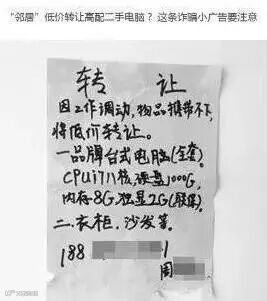 “邻居”低价转让高配二手电脑？这条诈骗小广告要注意
转让
因工作调动，物品携带不下
将低价转让。
一品牌台式电脑(全套)。
CPUi7八核，硬盘1000G，
内存8G独显2G(联保)。
二.衣柜，沙发等。
188 1
周